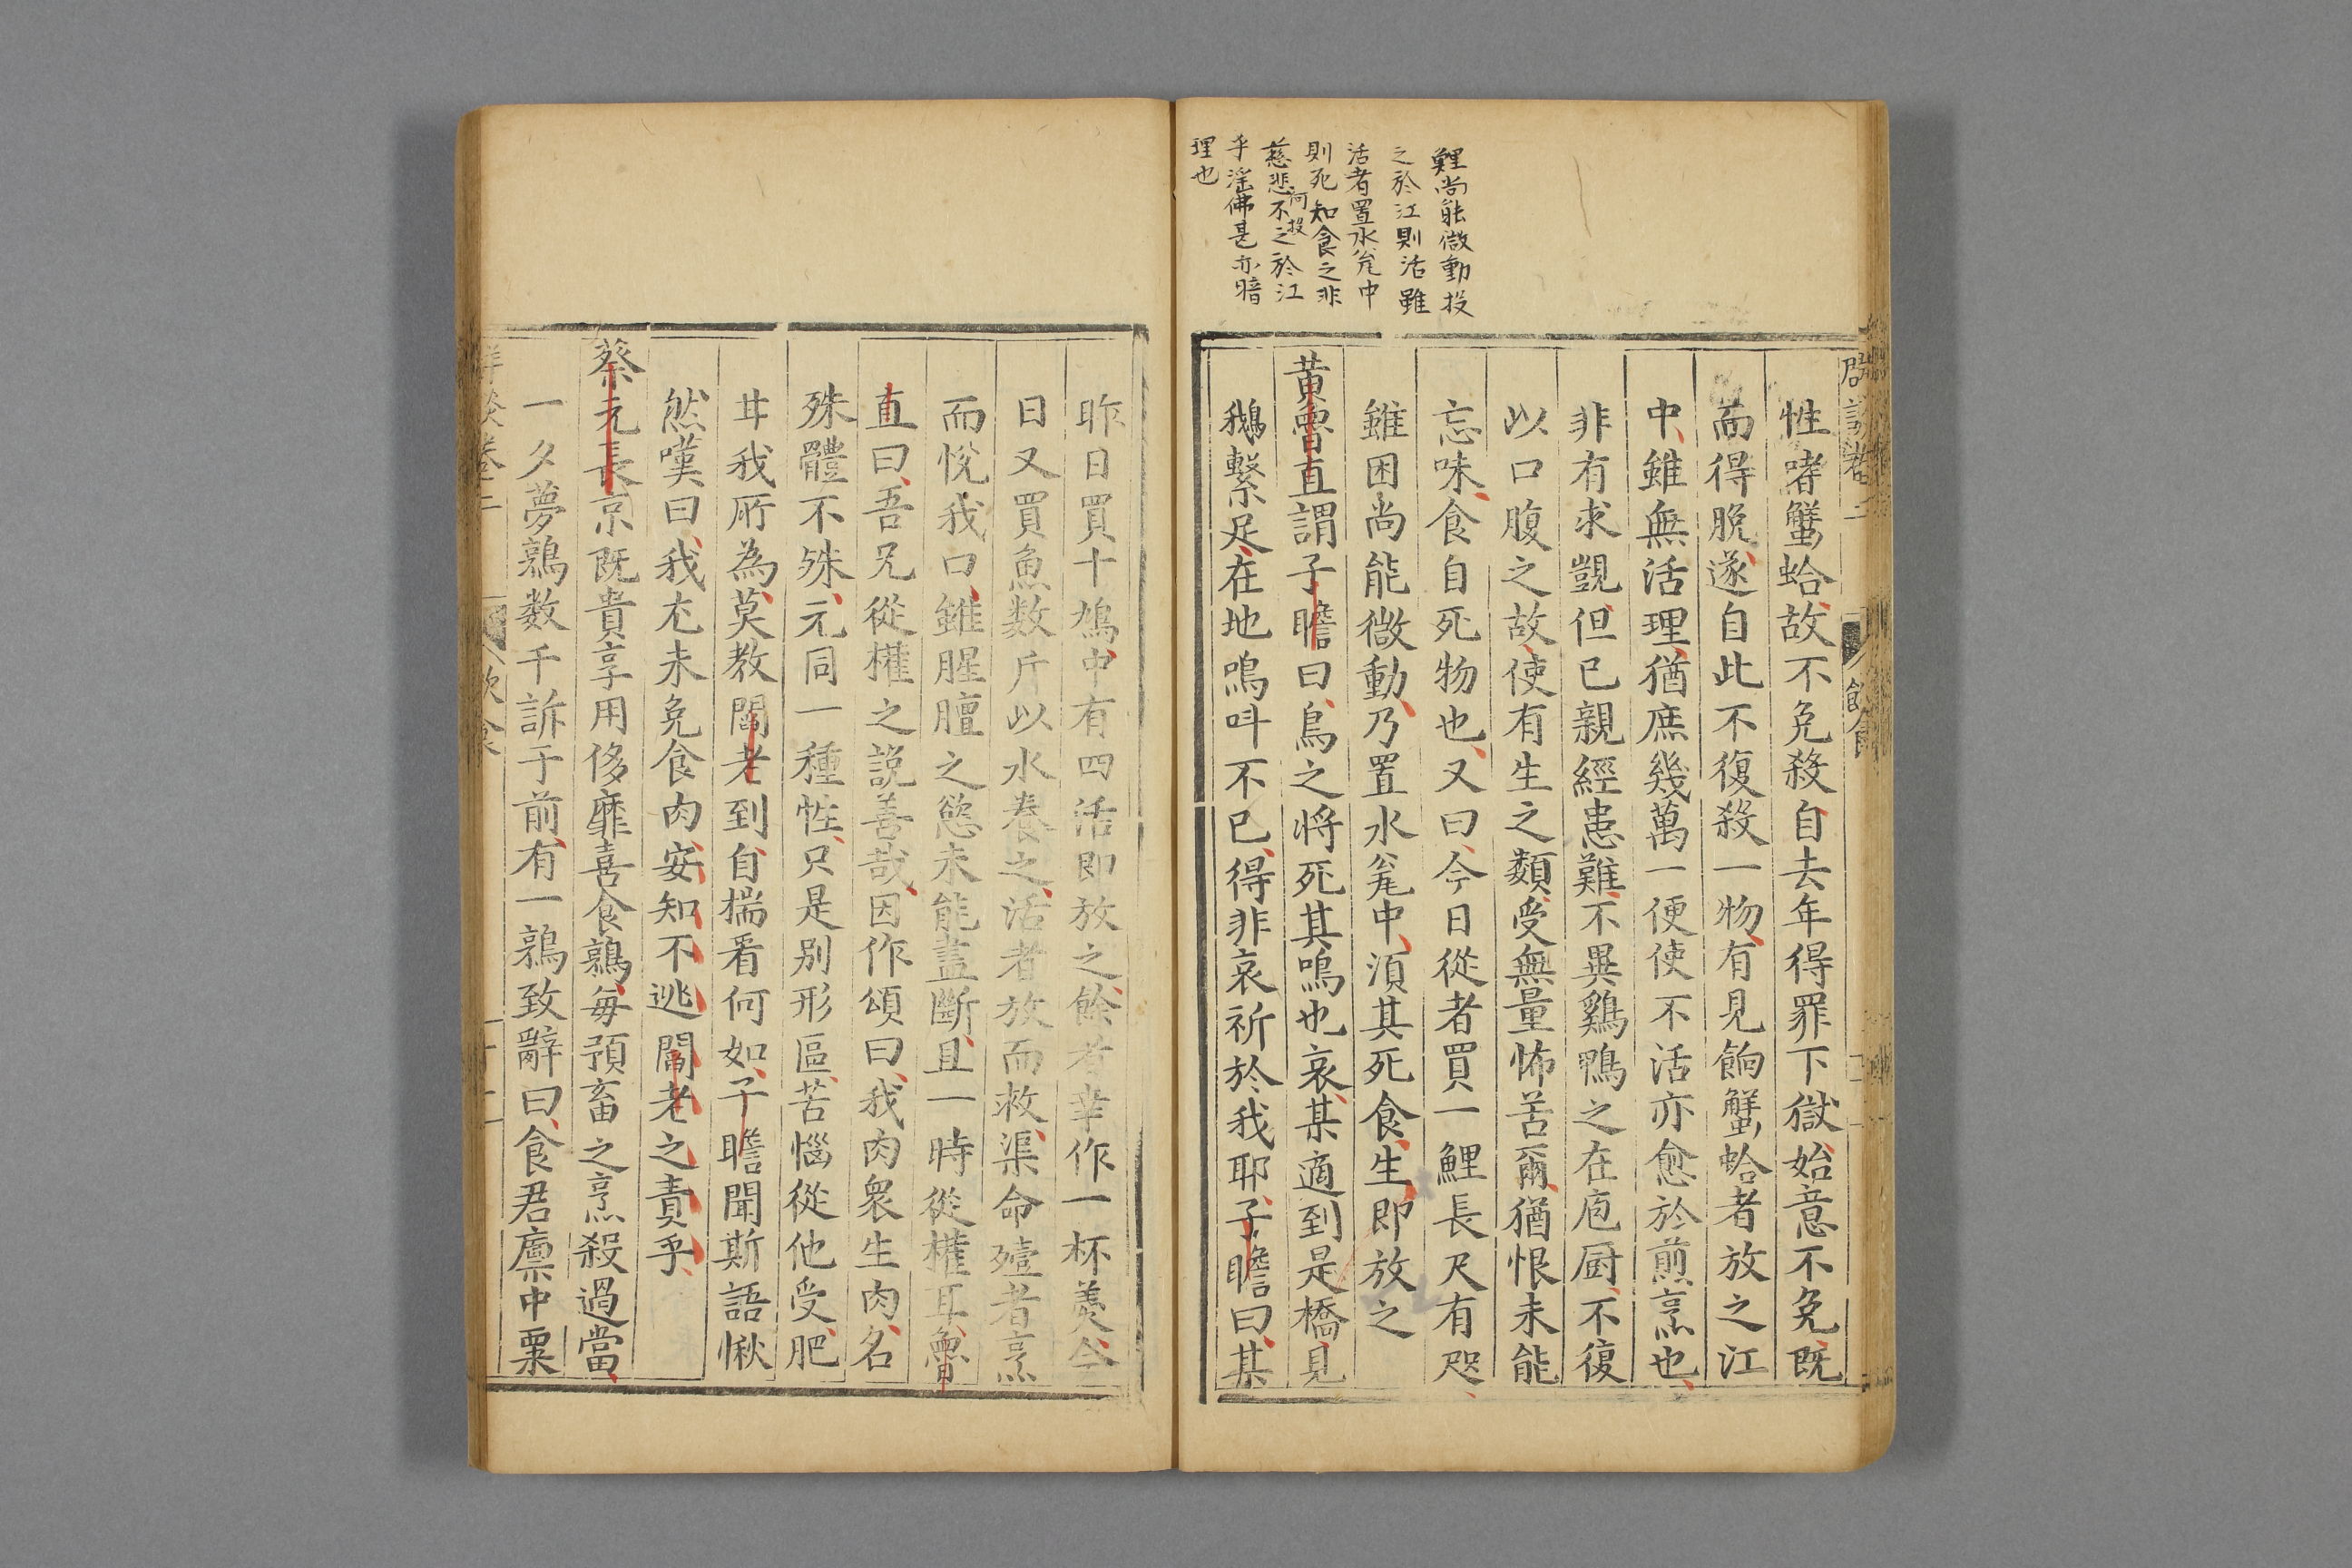 鯉尚能微動投
之於江則活雖
活者置水瓮中
則死知食之非
慈悲何不投之於江
乎滛佛甚亦暗
理也
性嗜蟹蛤故不免殺自去年得罪下獄始意不免既
而得脫遂自此不復殺一物有見餉蟹蛤者放之江
中雖無活理猶庶幾萬一便使不活亦愈於煎烹也
非有求覬但已親經患難不異鷄鴨之在庖厨不復
以口腹之故使有生之類受無量怖苦爾猶恨未能
忘味食自死物也又曰今日從者買一鯉長尺有咫
雖困尚能微動乃置水瓮中須其死食生即放之
黄魯直謂子瞻曰鳥之將死其鳴也哀某適到是橋見
鵝繫足在地鳴呌不已得非哀祈於我耶子瞻曰某
昨日買十鳩中有四活即放之餘者幸作一杯羹今
日又買魚数斤以水養之活者放而救渠命殪者烹
而悅我口雖腥膻之慾未能盡斷且一時從權耳魯
直曰吾兄從權之說善哉因作頌曰我肉衆生肉名
殊體不殊元同一種性只是别形區苦惱從他受肥
甘我所為莫教閻老到自揣看何如子瞻聞斯語愀
然嘆曰我尤未免食肉安知不逃閻老之責乎
蔡元長京既貴享用侈靡喜食鶉毎預畜之烹殺過當
一夕夢鶉数千訴于前有一鶉致辭曰食君廪中粟